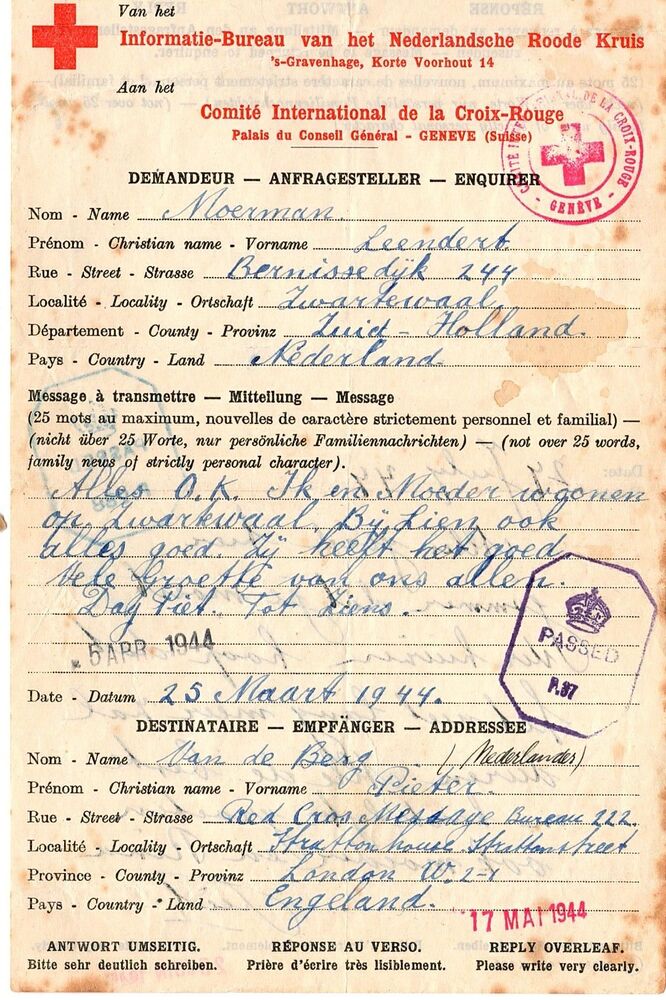 Van het
Informatie-Bureau van het Nederlandsche Roode Kruis
's-Gravenhage, Korte Voorhout 14
Aan het
Comité International de la Croix-Rouge
Palais du Conseil Général - GENEVE (Suisse)
COMITÉ INTERNATIONAL DE LA CROIX-ROUGE - GENÈVE -
DEMANDEUR — ANFRAGESTELLER — ENQUIRER
Nom - Name Moerman.
Prénom - Christian name - Vorname Leendert.
Rue - Street - Strasse Bernissedijk 244
Localité - Locality - Ortschaft Zwartewaal
Département - County - Provinz Zuid-Holland.
Pays - Country - Land Nederland
Message à transmettre — Mitteilung — Message
(25 mots au maximum, nouvelles de caractère strictement personnel et familial) —
(nicht über 25 Worte, nur persönliche Familiennachrichten) — (not over 25 words,
family news of strictly personal character).
Alles O.K. Ik en Moeder wonen
op Zwartewaal. Bij Lien ook
alles goed. Zij heeft het goed.
Vele Groette van ons allen.
Dag Piet. Tot Ziens.
5 APR 1944
PASSED
P.37
Date - Datum 25 Maart 1944.
DESTINATAIRE — EMPFÄNGER — ADDRESSEE
Nom - Name Van de Berg (Nederlander)
Prénom - Christian name - Vorname Pieter.
Rue - Street - Strasse Red Cros Message Bureau 222.
Localité - Locality - Ortschaft Stratton house. Strattonstreet
Province - County - Provinz London W.2-1
Pays - Country - Land Engeland.
17 MAI 1944
ANTWORT UMSEITIG. RÉPONSE AU VERSO. REPLY OVERLEAF.
Bitte sehr deutlich schreiben. Prière d'écrire très lisiblement. Please write very clearly.